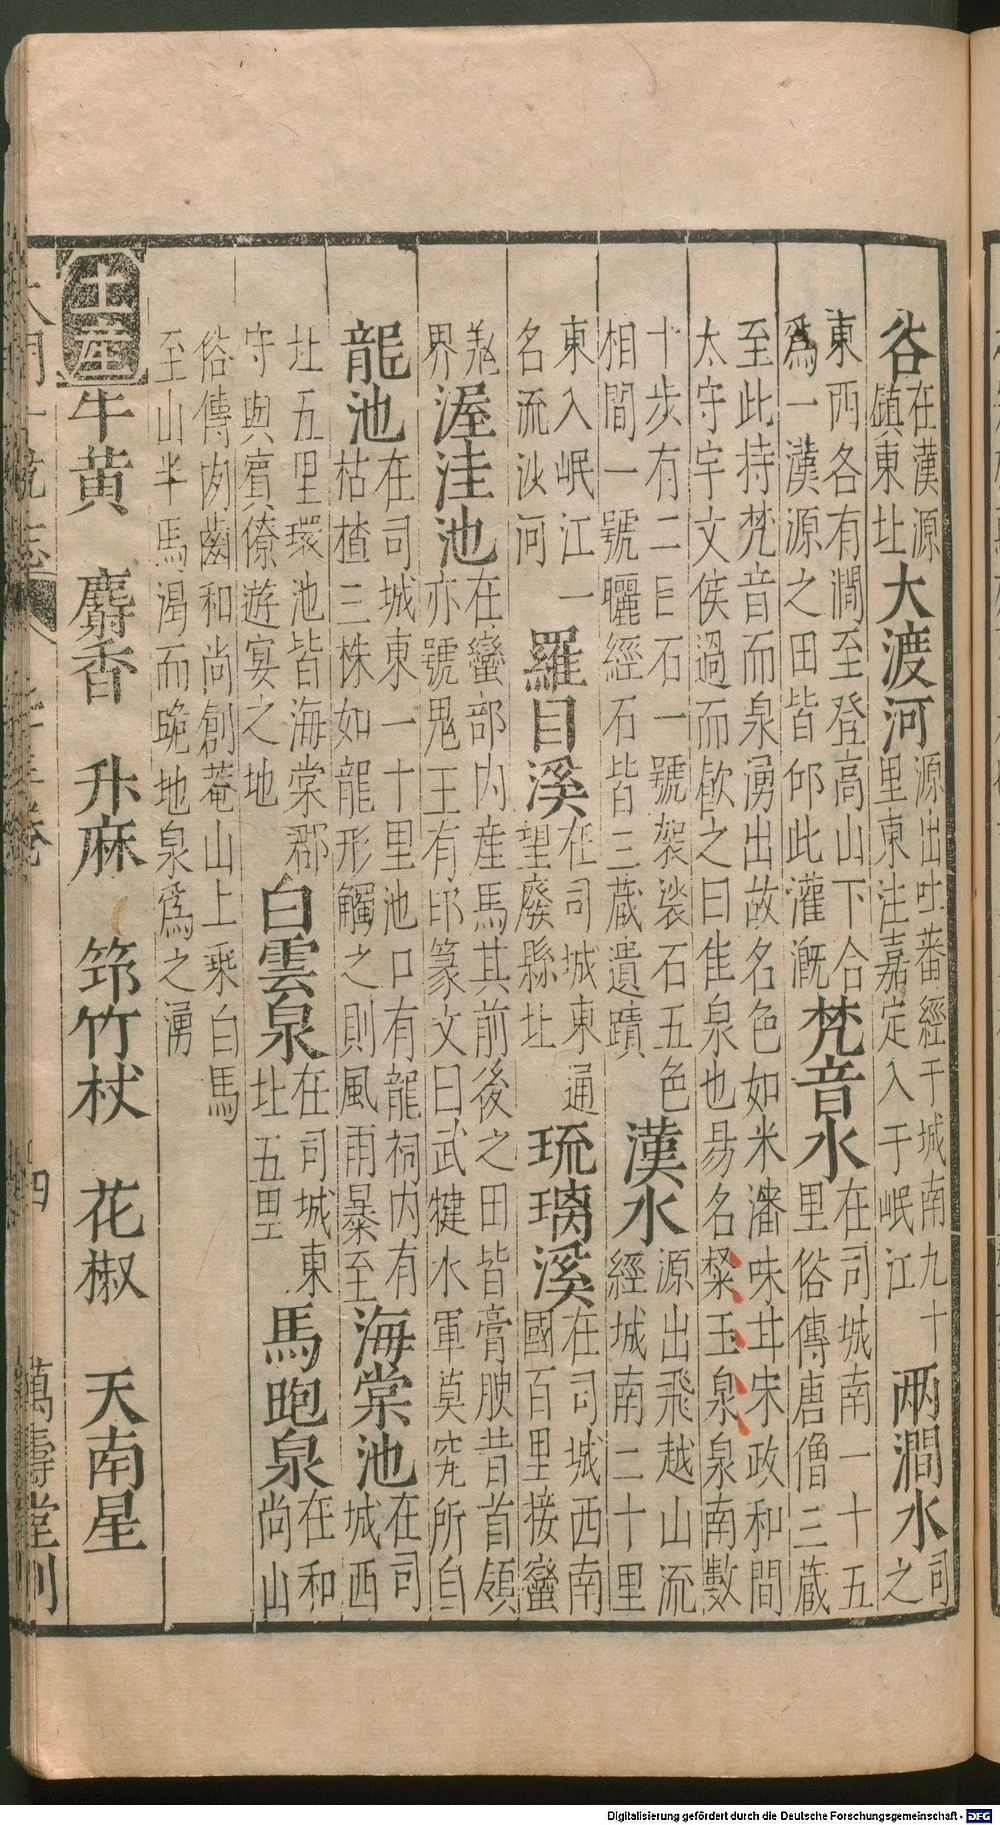 谷在漢源鎮東北大渡河源出吐蕃經于城南九十里東注嘉定入于岷江兩澗水司之
東西各有澗至登高山下合爲一漢源之田皆仰此灌漑梵音水在司城南一十五里俗傳唐僧三藏
至此持梵音而泉湧出故名色如米瀋味甘宋政和間太守宇文侯過而歃之曰隹泉也易名粲玉泉泉南數
十步有二巨石一號袈裟石五色相間一號曬經石皆三藏遺蹟漢水源出飛越山流經城南二十里
東入岷江一名流沙河羅目溪在司城東通望廢縣北琉璃溪在司城西南國百里接蠻
羌界渥洼池在蠻部内産馬其前後之田皆膏腴昔首領亦號鬼王有印篆文曰武犍水軍莫究所自
龍池在司城東一十里池口有龍祠内有枯楂三株如龍形觸之則風雨暴至海棠池在司城西
北五里環池皆海棠郡守與賓僚遊宴之地白雲泉在司城東北五里馬跑泉在和尚山
俗傳齒和尚創菴山上乘白馬至山半馬渴而跑地泉爲之湧
土産 牛黄 麝香 升麻 筇竹杖 花椒 天南星
大明一統志 卷 四 萬壽堂刊
Digitalisierung gefördert durch die Deutsche Forschungsgemeinschaft - DFG